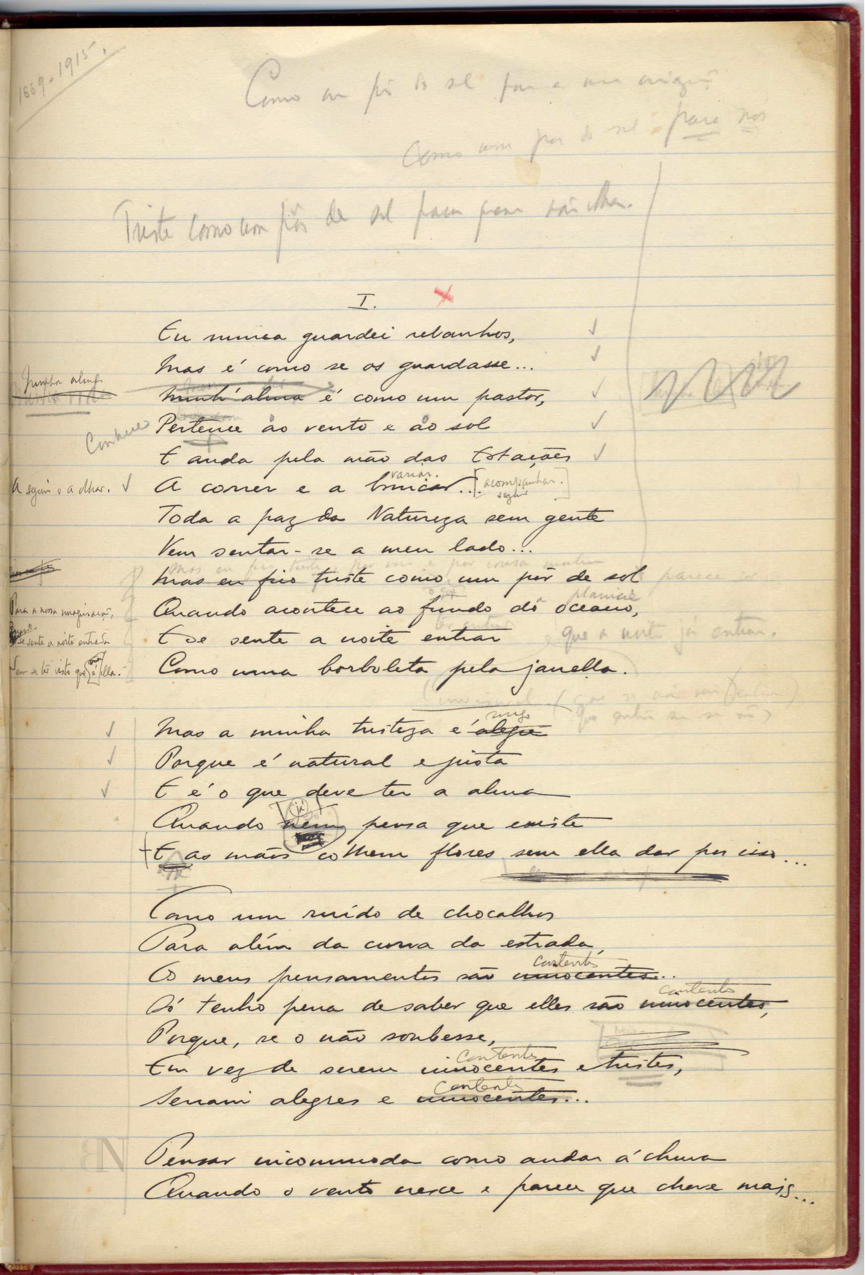 1889-1915.
Como um pôr do sol para a
Como um pôr do sol para nos
Triste como um pôr de sol para quem não olha.
I.
Eu nunca guardei rebanhos,
Mas é como se os guardasse...
Minha alma
Minh'alma é como um pastor,
Conhece
Pertence ao vento e ao sol
E anda pela mão das Estações
varias.
A seguir e a olhar. A correr e a brincar... [acompanhar.]
seguir
Toda a paz da Natureza sem gente
Vem sentar-se a meu lado...
Mas eu fico triste como um pôr de sol parece
planicie
Para a nossa imaginação, Quando acontece ao fundo do oceano,
Se sente a noite entrada E se sente a noite entrar que a noite já entrou.
Como uma borboleta pela janella.
socego
Mas a minha tristeza é alegre
Porque é natural e justa
E é o que deve ter a alma
(já)
Quando nem pensa que existe
E as mãos colhem flores sem ella dar por isso...
Como um ruido de chocalhos
Para além da curva da estrada,
contentes
Os meus pensamentos são innocentes...
contentes
Só tenho pena de saber que elles são innocentes,
Porque, se o não soubesse,
contentes
Em vez de serem innocentes e tristes,
contentes
Seriam alegres e innocentes...
BN
Pensar incommoda como andar á chuva
Quando o vento cresce e parece que chove mais...